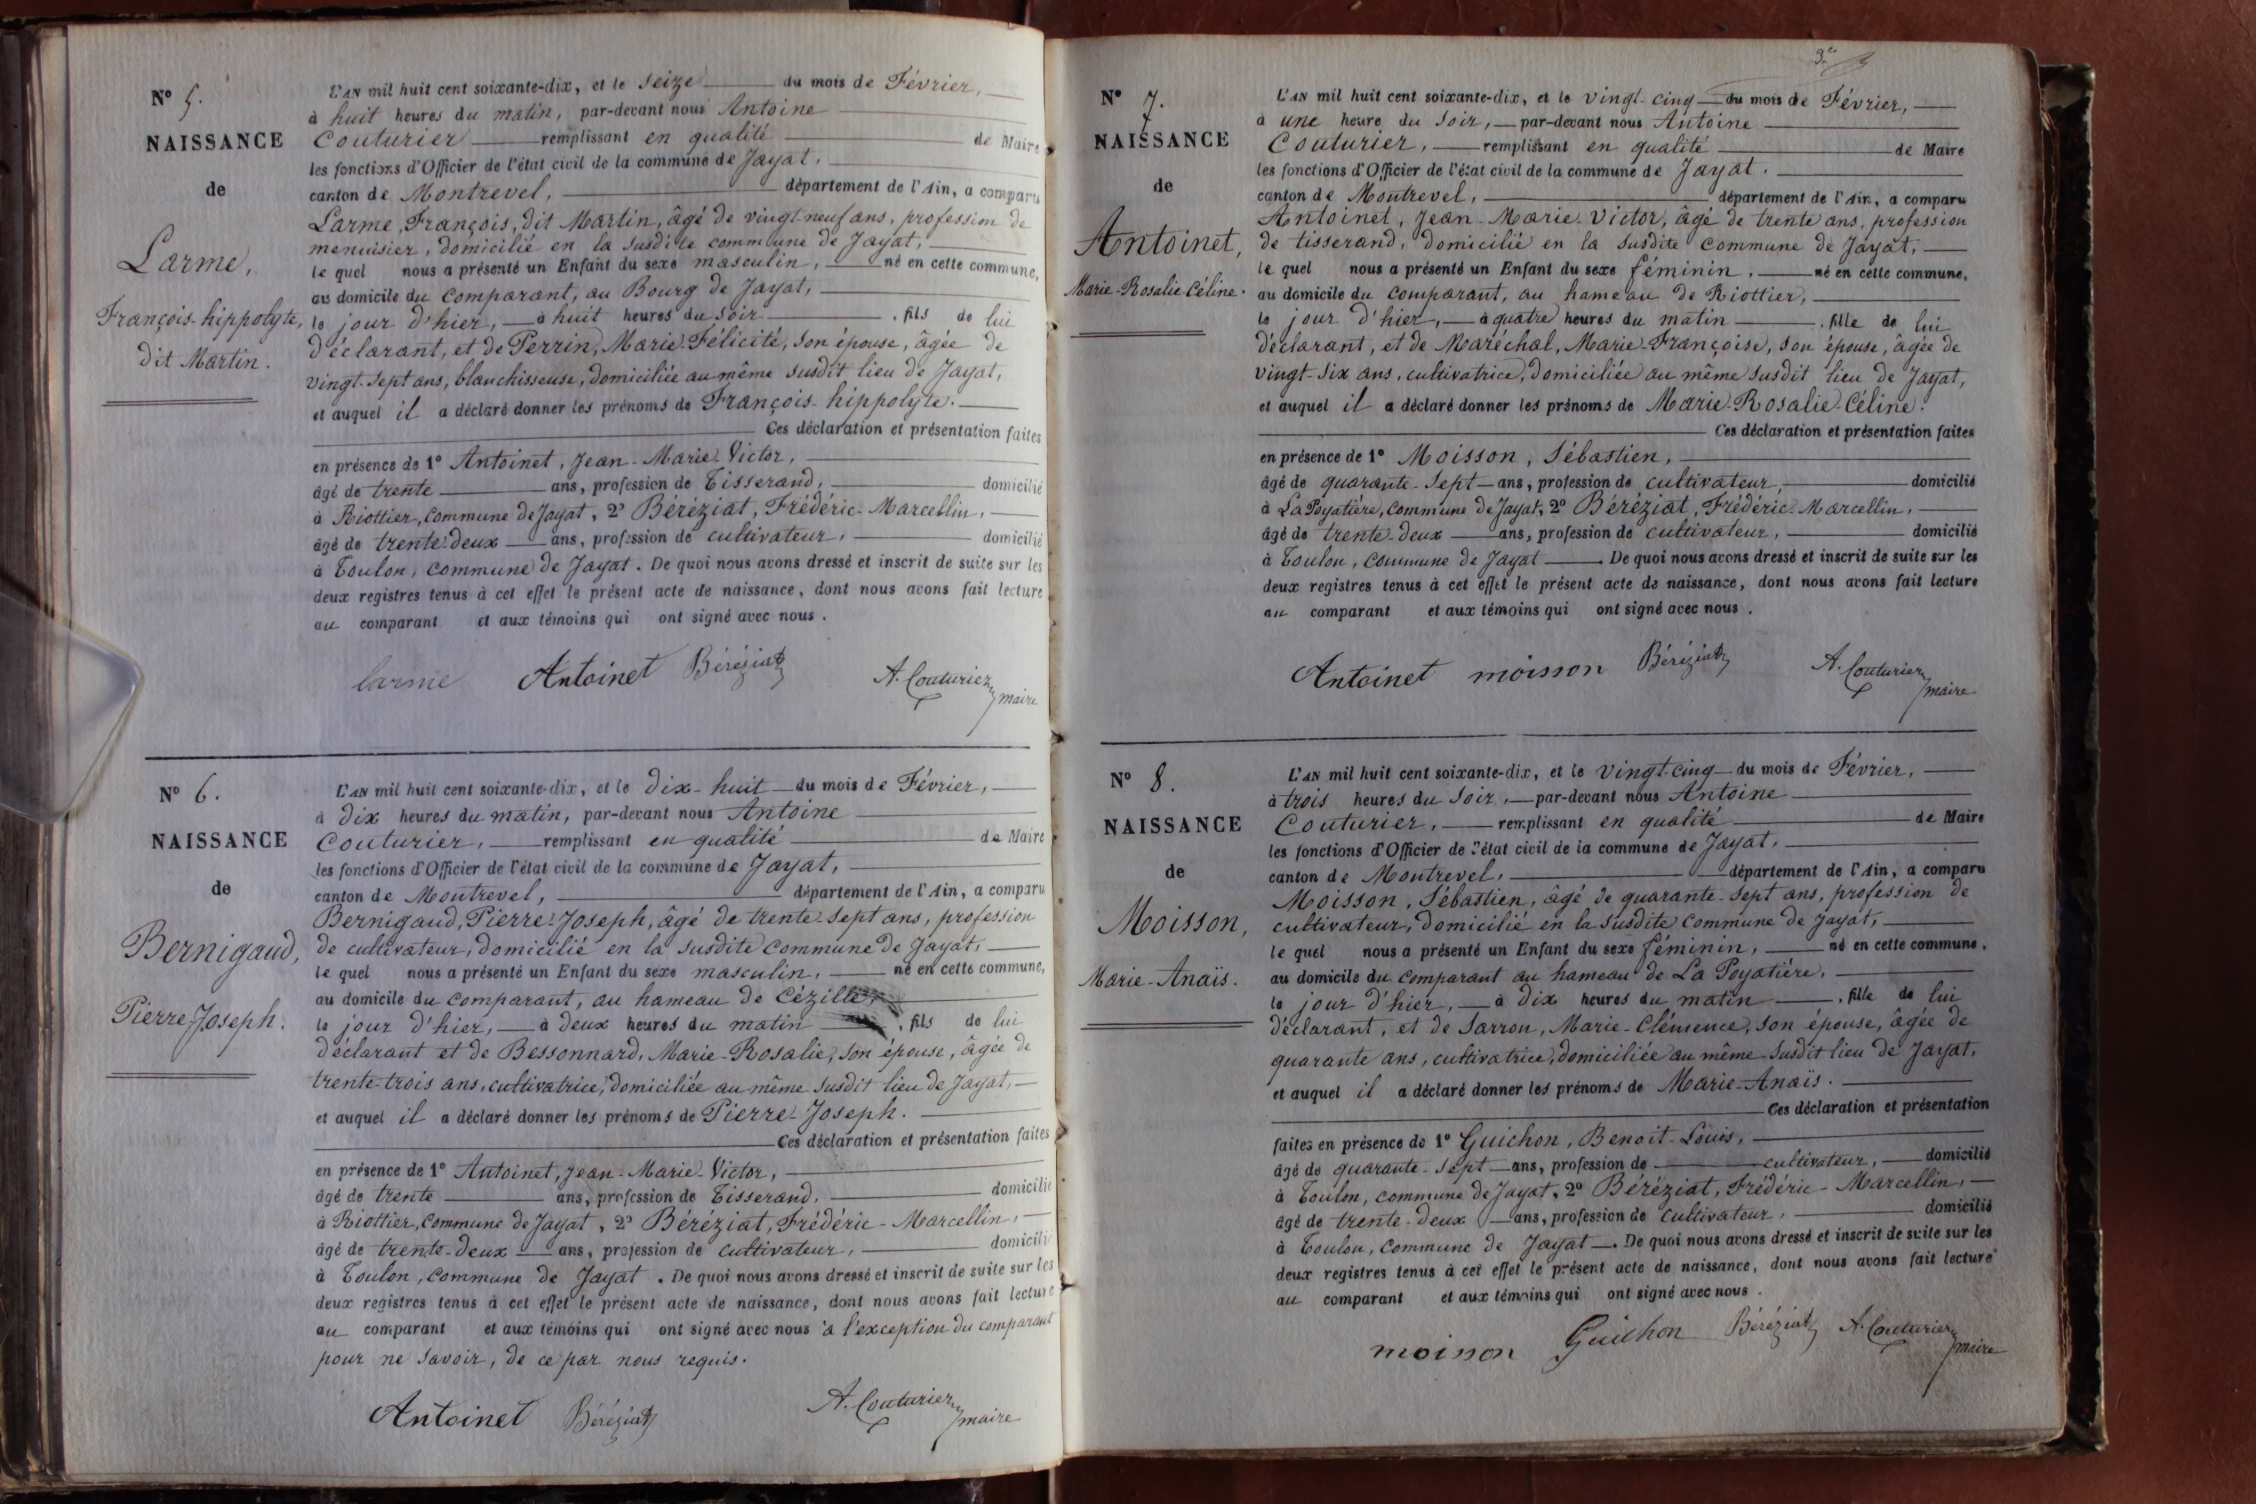 N° 5.
NAISSANCE
de
Larme,
François-hippolyte,
dit Martin.
L'AN mil huit cent soixante-dix, et le seize du mois de Février,
à huit heures du matin, par-devant nous Antoine
Couturier remplissant en qualité de Maire
les fonctions d'Officier de l'état civil de la commune de Jayat,
canton de Montrevel, département de l'Ain, a comparu
Larme, François, dit Martin, âgé de vingt-neuf ans, profession de
menuisier, domicilié en la susdite commune de Jayat,
le quel nous a présenté un Enfant du sexe masculin, né en cette commune,
au domicile du comparant, au Bourg de Jayat,
le jour d'hier, à huit heures du soir, fils de lui
déclarant, et de Perrin, Marie-Félicité, son épouse, âgée de
vingt-sept ans, blanchisseuse, domiciliée au même susdit lieu de Jayat,
et auquel il a déclaré donner les prénoms de François-hippolyte.
Ces déclaration et présentation faites
en présence de 1° Antoinet, Jean-Marie-Victor,
âgé de trente ans, profession de Tisserand, domicilié
à Riottier, commune de Jayat, 2° Béréziat, Frédéric-Marcellin,
âgé de trente-deux ans, profession de cultivateur, domicilié
à Toulon, commune de Jayat. De quoi nous avons dressé et inscrit de suite sur les
deux registres tenus à cet effet le présent acte de naissance, dont nous avons fait lecture
au comparant et aux témoins qui ont signé avec nous.
larme Antoinet Béréziat A. Couturier
maire
N° 6.
NAISSANCE
de
Bernigaud,
Pierre-Joseph.
L'AN mil huit cent soixante-dix, et le dix-huit du mois de Février,
à dix heures du matin, par-devant nous Antoine
Couturier, remplissant en qualité de Maire
les fonctions d'Officier de l'état civil de la commune de Jayat,
canton de Montrevel, département de l'Ain, a comparu
Bernigaud, Pierre-Joseph, âgé de trente-sept ans, profession
de cultivateur, domicilié en la susdite commune de Jayat,
le quel nous a présenté un Enfant du sexe masculin, né en cette commune,
au domicile du comparant, au hameau de Cézille,
le jour d'hier, à deux heures du matin, fils de lui
déclarant et de Bessonnard, Marie-Rosalie, son épouse, âgée de
trente-trois ans, cultivatrice, domiciliée au même susdit lieu de Jayat,
et auquel il a déclaré donner les prénoms de Pierre-Joseph.
Ces déclaration et présentation faites
en présence de 1° Antoinet, Jean-Marie-Victor,
âgé de trente ans, profession de Tisserand, domicilié
à Riottier, commune de Jayat, 2° Béréziat, Frédéric-Marcellin,
âgé de trente-deux ans, profession de cultivateur, domicilié
à Toulon, commune de Jayat. De quoi nous avons dressé et inscrit de suite sur les
deux registres tenus à cet effet le présent acte de naissance, dont nous avons fait lecture
au comparant et aux témoins qui ont signé avec nous à l'exception du comparant
pour ne savoir, de ce par nous requis.
Antoinet Béréziat A. Couturier
maire
3e
N° 7.
NAISSANCE
de
Antoinet,
Marie-Rosalie-Céline.
L'AN mil huit cent soixante-dix, et le vingt-cinq du mois de Février,
à une heure du soir, par-devant nous Antoine
Couturier, remplissant en qualité de Maire
les fonctions d'Officier de l'état civil de la commune de Jayat.
canton de Montrevel, département de l'Ain, a comparu
Antoinet, Jean-Marie-Victor, âgé de trente ans, profession
de tisserand, domicilié en la susdite commune de Jayat,
le quel nous a présenté un Enfant du sexe féminin, né en cette commune,
au domicile du comparant, au hameau de Riottier,
le jour d'hier, à quatre heures du matin, fille de lui
déclarant, et de Maréchal, Marie-Françoise, son épouse, âgée de
vingt-six ans, cultivatrice, domiciliée au même susdit lieu de Jayat,
et auquel il a déclaré donner les prénoms de Marie-Rosalie-Céline.
Ces déclaration et présentation faites
en présence de 1° Moisson, Sébastien,
âgé de quarante-sept ans, profession de cultivateur, domicilié
à La Poyatière, commune de Jayat, 2° Béréziat, Frédéric-Marcellin,
âgé de trente-deux ans, profession de cultivateur, domicilié
à Toulon, commune de Jayat. De quoi nous avons dressé et inscrit de suite sur les
deux registres tenus à cet effet le présent acte de naissance, dont nous avons fait lecture
au comparant et aux témoins qui ont signé avec nous.
Antoinet moisson Béréziat A. Couturier
maire
N° 8.
NAISSANCE
de
Moisson,
Marie-Anaïs.
L'AN mil huit cent soixante-dix, et le vingt-cinq du mois de Février,
à trois heures du soir, par-devant nous Antoine
Couturier, remplissant en qualité de Maire
les fonctions d'Officier de l'état civil de la commune de Jayat,
canton de Montrevel, département de l'Ain, a comparu
Moisson, Sébastien, âgé de quarante-sept ans, profession de
cultivateur, domicilié en la susdite commune de Jayat,
le quel nous a présenté un Enfant du sexe féminin, né en cette commune,
au domicile du comparant au hameau de La Poyatière,
le jour d'hier, à dix heures du matin, fille de lui
déclarant, et de Sarron, Marie-Clémence, son épouse, âgée de
quarante ans, cultivatrice, domiciliée au même susdit lieu de Jayat,
et auquel il a déclaré donner les prénoms de Marie-Anaïs.
Ces déclaration et présentation
faites en présence de 1° Guichon, Benoit-Louis,
âgé de quarante-sept ans, profession de cultivateur, domicilié
à Toulon, commune de Jayat, 2° Béréziat, Frédéric-Marcellin,
âgé de trente-deux ans, profession de cultivateur, domicilié
à Toulon, commune de Jayat. De quoi nous avons dressé et inscrit de suite sur les
deux registres tenus à cet effet le présent acte de naissance, dont nous avons fait lecture
au comparant et aux témoins qui ont signé avec nous.
moisson Guichon Béréziat A. Couturier
maire